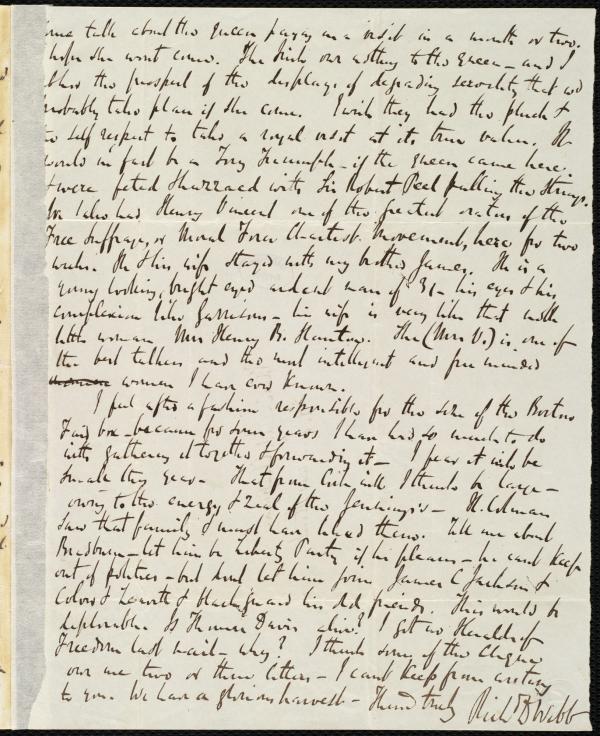 some talk about the queen paying us a visit in a month or two.
I hope she wont come. The Irish owe nothing to the queen - and I
the prospect of the display of degrading servility that wd
probably take place if she come. I wish they had the pluck &
the self respect to take a royal visit at its true value. It
would in fact be a Tory Triumph - if the queen came here,
& were feted & huzzaed with Sir Robert Peel pulling the strings.
We also had Henry Vincent one of the greatest orators of the
Free Suffrage, or Moral Force Chartist Movement, here for two
weeks. He & his wife stayed with my brother James. He is a
young looking, bright eyed ardent man of 31 - his eyes & his
complexion like Garrisons - his wife is very like that noble
little woman Mrs Henry B. Stanton. She (Mrs V.) is one of
the best talkers and the most intelligent and free minded
women I have ever known.
I feel after a fashion responsible for the size of the Boston
Fair box - because for some years I have had so much to do
with gathering it together & forwarding it - I fear it will be
small this year - That from Cork will I think be large -
owing to the energy & zeal of the Jennings's - H. Colman
saw that family & must have liked them. Tell me about
Bradburn - let him be Liberty Party if he please - he cant keep
out of politics - but dont let him join James C. Jackson &
Colver & Leavitt & blackguard his old friends. This would be
deplorable. Is Thomas Davis alive? I got no Heralds of
Freedom last mail - why? I think some of the clique
owe me two or three letters - I cant keep from writing
to you. We have a glorious harvest - Thine truly Richd D Webb